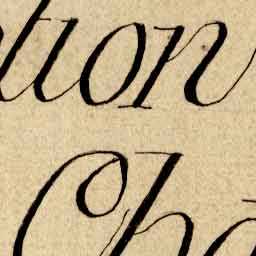 tion
Cha